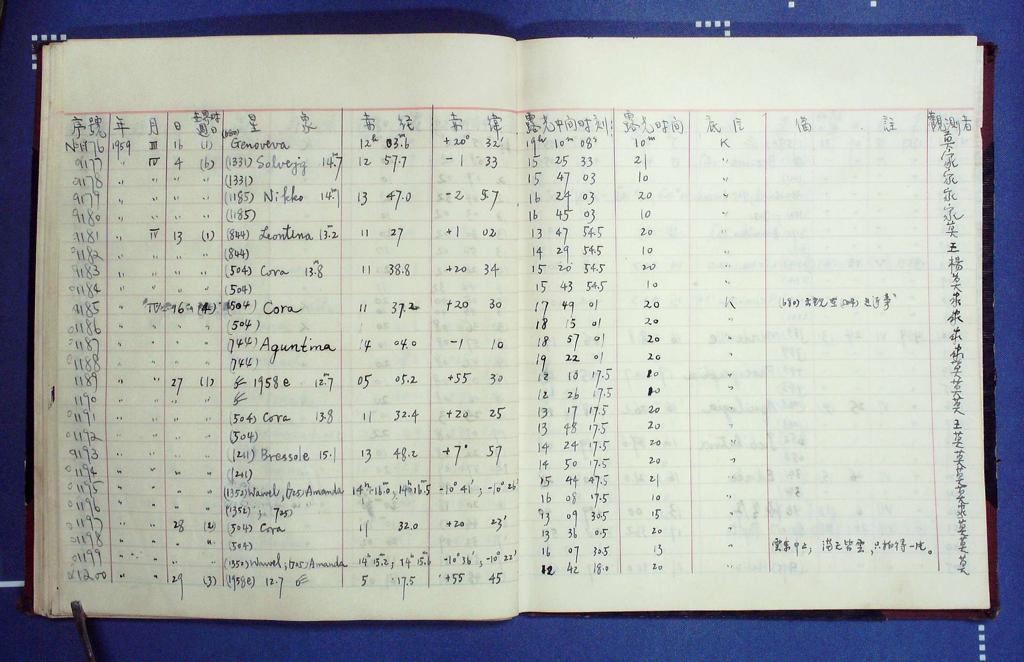 序號 年 月 日 世界時週日 星象 赤經 赤緯 露光中間時刻 露光時間 底片 備註 觀測者
No 1176 1959 III 16 (1) (680) Genoveva 12ʰ 03.ᵐ6 +20° 32′ 19ʰ 10ᵐ 08ˢ 10ᵐ K
1177 〃 IV 4 (6) (1331) Solvejg 14.ᵐ7 12 57.7 -1 33 15 25 33 21 〃
1178 〃 〃 〃 〃 (1331) 15 47 03 10 〃
1179 〃 〃 〃 〃 (1185) Nikko 14.ᵐ1 13 47.0 -2 57 16 24 03 20 〃
1180 〃 〃 〃 〃 (1185) 16 45 03 10 〃
1181 〃 IV 13 (1) (844) Leontina 13.ᵐ2 11 27 +1 02 13 47 54.5 20 〃 英
1182 〃 〃 〃 〃 (844) 14 29 54.5 10 〃 王
1183 〃 〃 〃 〃 (504) Cora 13.ᵐ8 11 38.8 +20 34 15 20 54.5 20 〃 楊
1184 〃 〃 〃 〃 (504) 15 43 54.5 10 〃
1185 〃 IV 16 (4) (504) Cora 11 37.2 +20 30 17 49 01 20 K
1186 〃 〃 〃 〃 (504) 18 15 01 20 〃
1187 〃 〃 〃 〃 (744) Aguntina 14 04.0 -1 10 18 57 01 20 〃
1188 〃 〃 〃 〃 (744) 19 22 01 20 〃
1189 〃 〃 27 (1) ☄ 1958e 12.ᵐ7 05 05.2 +55 30 12 10 17.5 10 〃 英
1190 〃 〃 〃 〃 ☄ 〃 12 26 17.5 10 〃 英
1191 〃 〃 〃 〃 (504) Cora 13.8 11 32.4 +20 25 13 17 17.5 20 〃 英
1192 〃 〃 〃 〃 (504) 13 48 17.5 20 〃 王
1193 〃 〃 〃 〃 (1211) Bressole 15.1 13 48.2 +7° 57 14 24 17.5 20 〃 英
1194 〃 〃 〃 〃 (1211) 14 50 17.5 20 〃 英
1195 〃 〃 〃 〃 (1352) Wawel; (725) Amanda 14ʰ 16.0; 14ʰ 16.ᵐ5 -10° 41′; -10° 26′ 15 44 47.5 21 〃 英
1196 〃 〃 〃 〃 (1352); (725) 16 08 17.5 10 〃 英
1197 〃 〃 28 (2) (504) Cora 11 32.0 +20 23′ 13 09 30.5 15 〃
1198 〃 〃 〃 〃 (504) 13 36 0.5 20 〃 英
1199 〃 〃 〃 〃 (1352) Wawel; (725) Amanda 14ʰ 15.2; 14ʰ 15.ᵐ6 -10° 36′; -10° 22′ 16 07 30.5 13 〃 英
1200 〃 〃 29 (3) (1958e) 12.7 ☄ 5 17.5 +55 45 12 42 18.0 20 〃 英